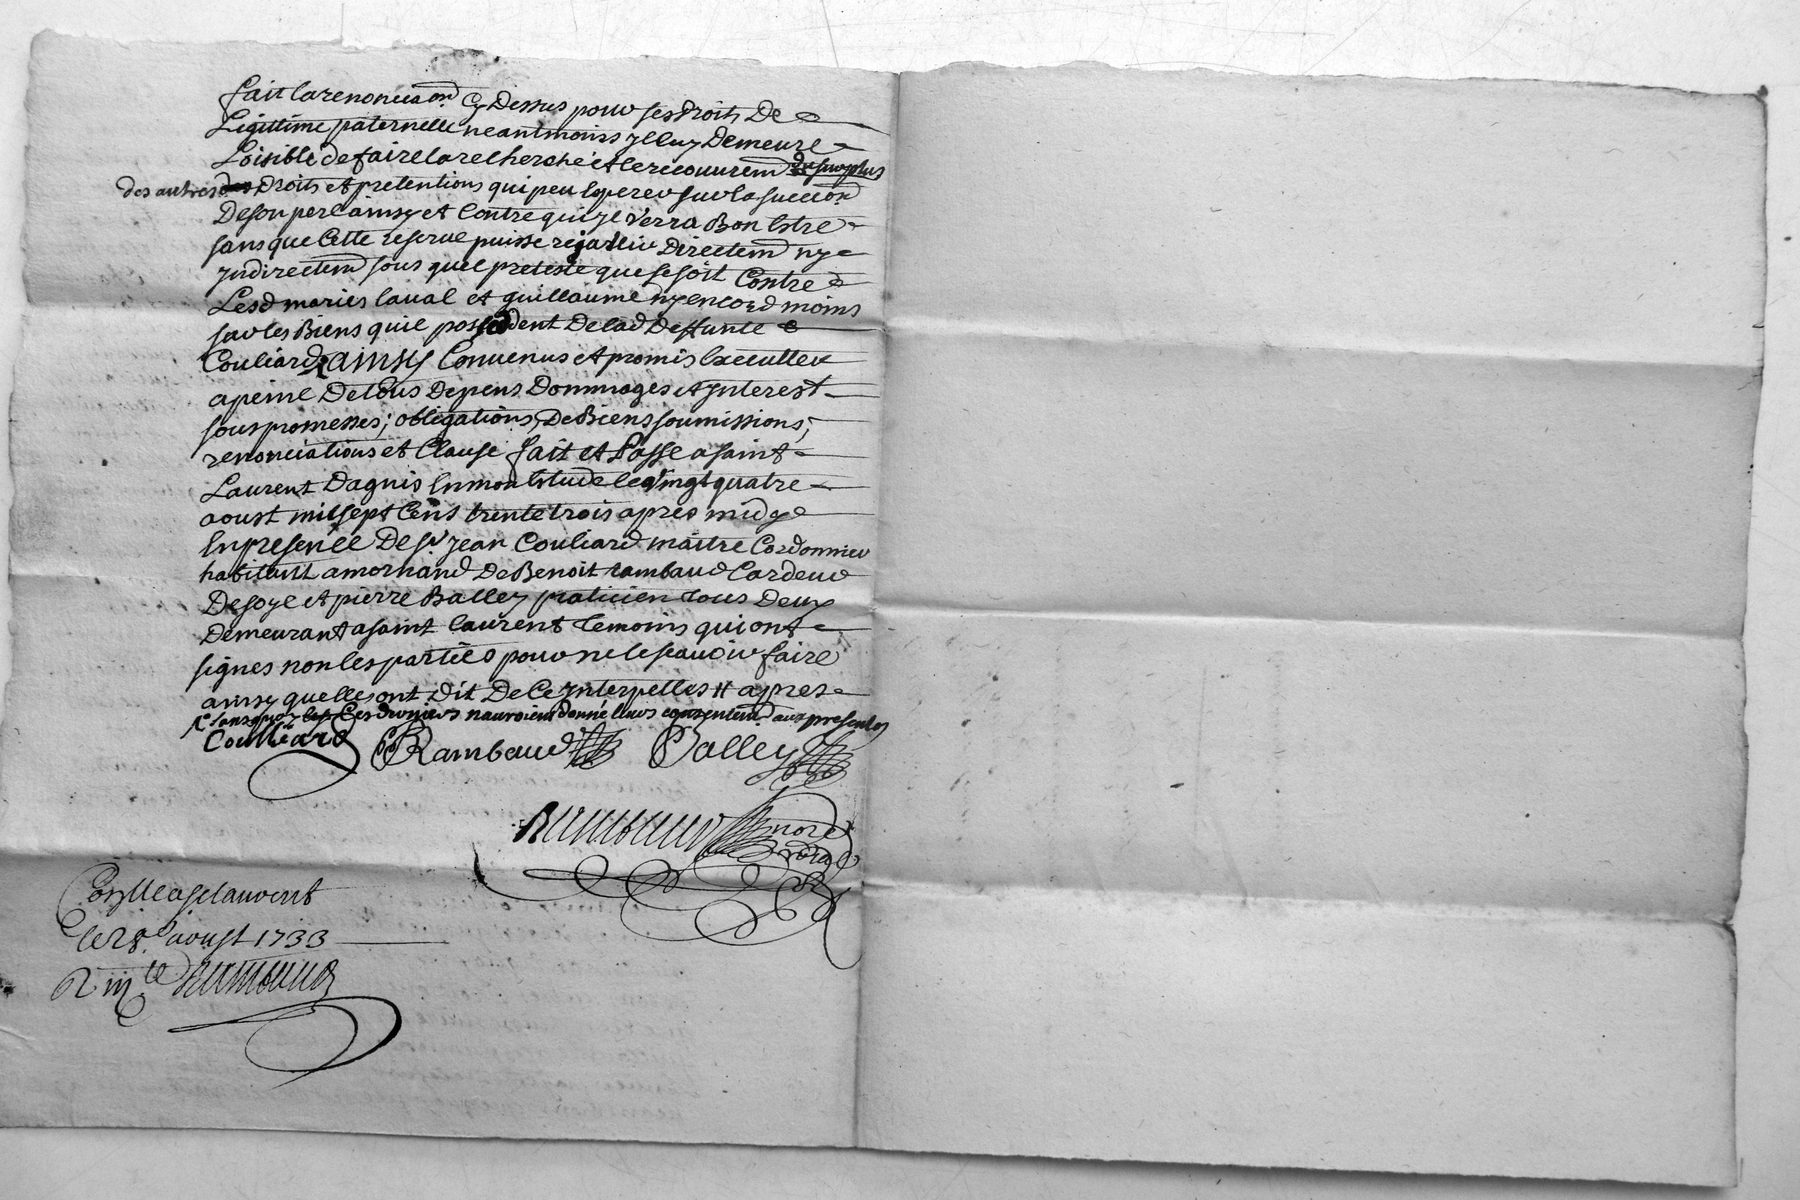 fait la renonciaon cy Dessus pour ses Droits De
Legittime paternelle neantmoins yl luy Demeure
Loisible de faire la recherche et le recouurem du surplus
des autres Droits et pretentions qui peu Esperer sur la succeon
De son pere ainsy et Contre qui yl verra Bon Estre
sans que Cette reserve puisse rejallir Directem ny
yndirectem sous quel pretexte que se soit Contre
Lesd maries laual et guillaume ny encord moins
sur les Biens quil possedent De lad Deffunte
Couliard ainsy Conuenus et promis Executter
a peine De tous Depens Dommages et ynterest
sous promesses; obligations, De Biens soumissions;
renonciations et Clause fait et Passe a saint
Laurent Dagnis En mon Estude le vingt quatre
aoust mil sept Cens trente trois apres midy
En presence De sr. jean Couliard maitre Cordonnier
habitant a mornand De Benoit rambaud Cardeur
De soye et pierre Balley praticien tous Deux
Demeurant a saint laurent temoins qui ont
signes non les parties pour ne le scauoir faire
ainsy quelles ont Dit De Ce ynterpelles # apres
sans quoy Ces Derniers n'auroient donné leurs consentem aux presentes
Coulliard Rambaud Balley
nore
roial
Conlle a st laurent
le 28e aoust 1733
R